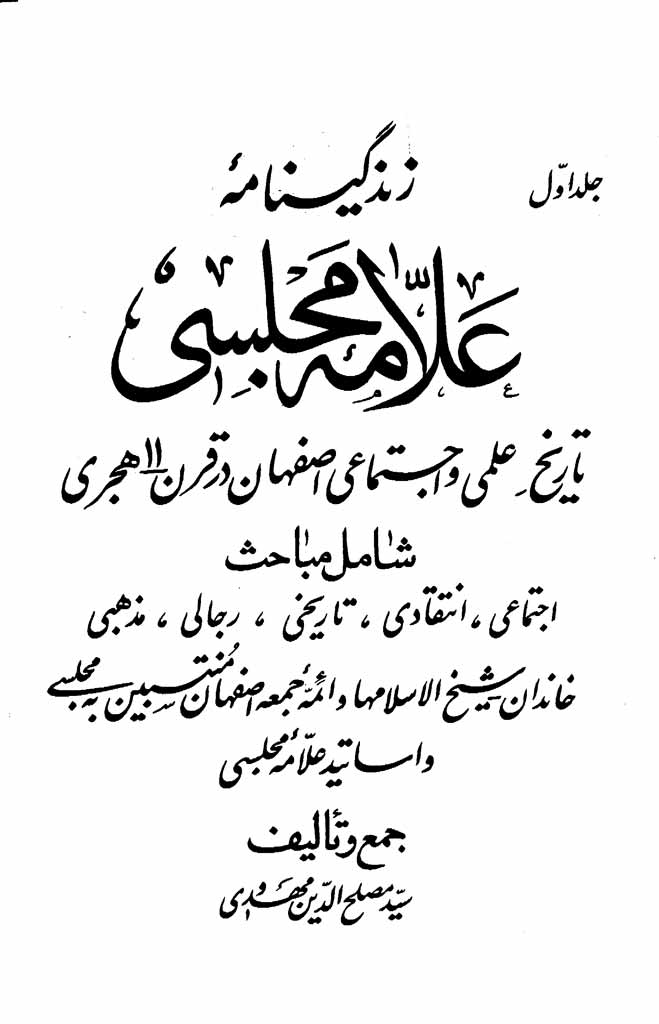 جلد اوّل
زندگینامهٔ
علّامه مجلسی
تاریخ علمی و اجتماعی اصفهان در قرن ۱۱ هجری
شامل مباحث
اجتماعی ، انتقادی ، تاریخی ، رجالی ، مذهبی
خاندان شیخ الاسلامها و ائمّهٔ جمعه اصفهان مُنتسبین به مجلسی
و اساتید علّامهٔ مجلسی
جمع و تألیف
سیّد مصلح الدّین مهدوی